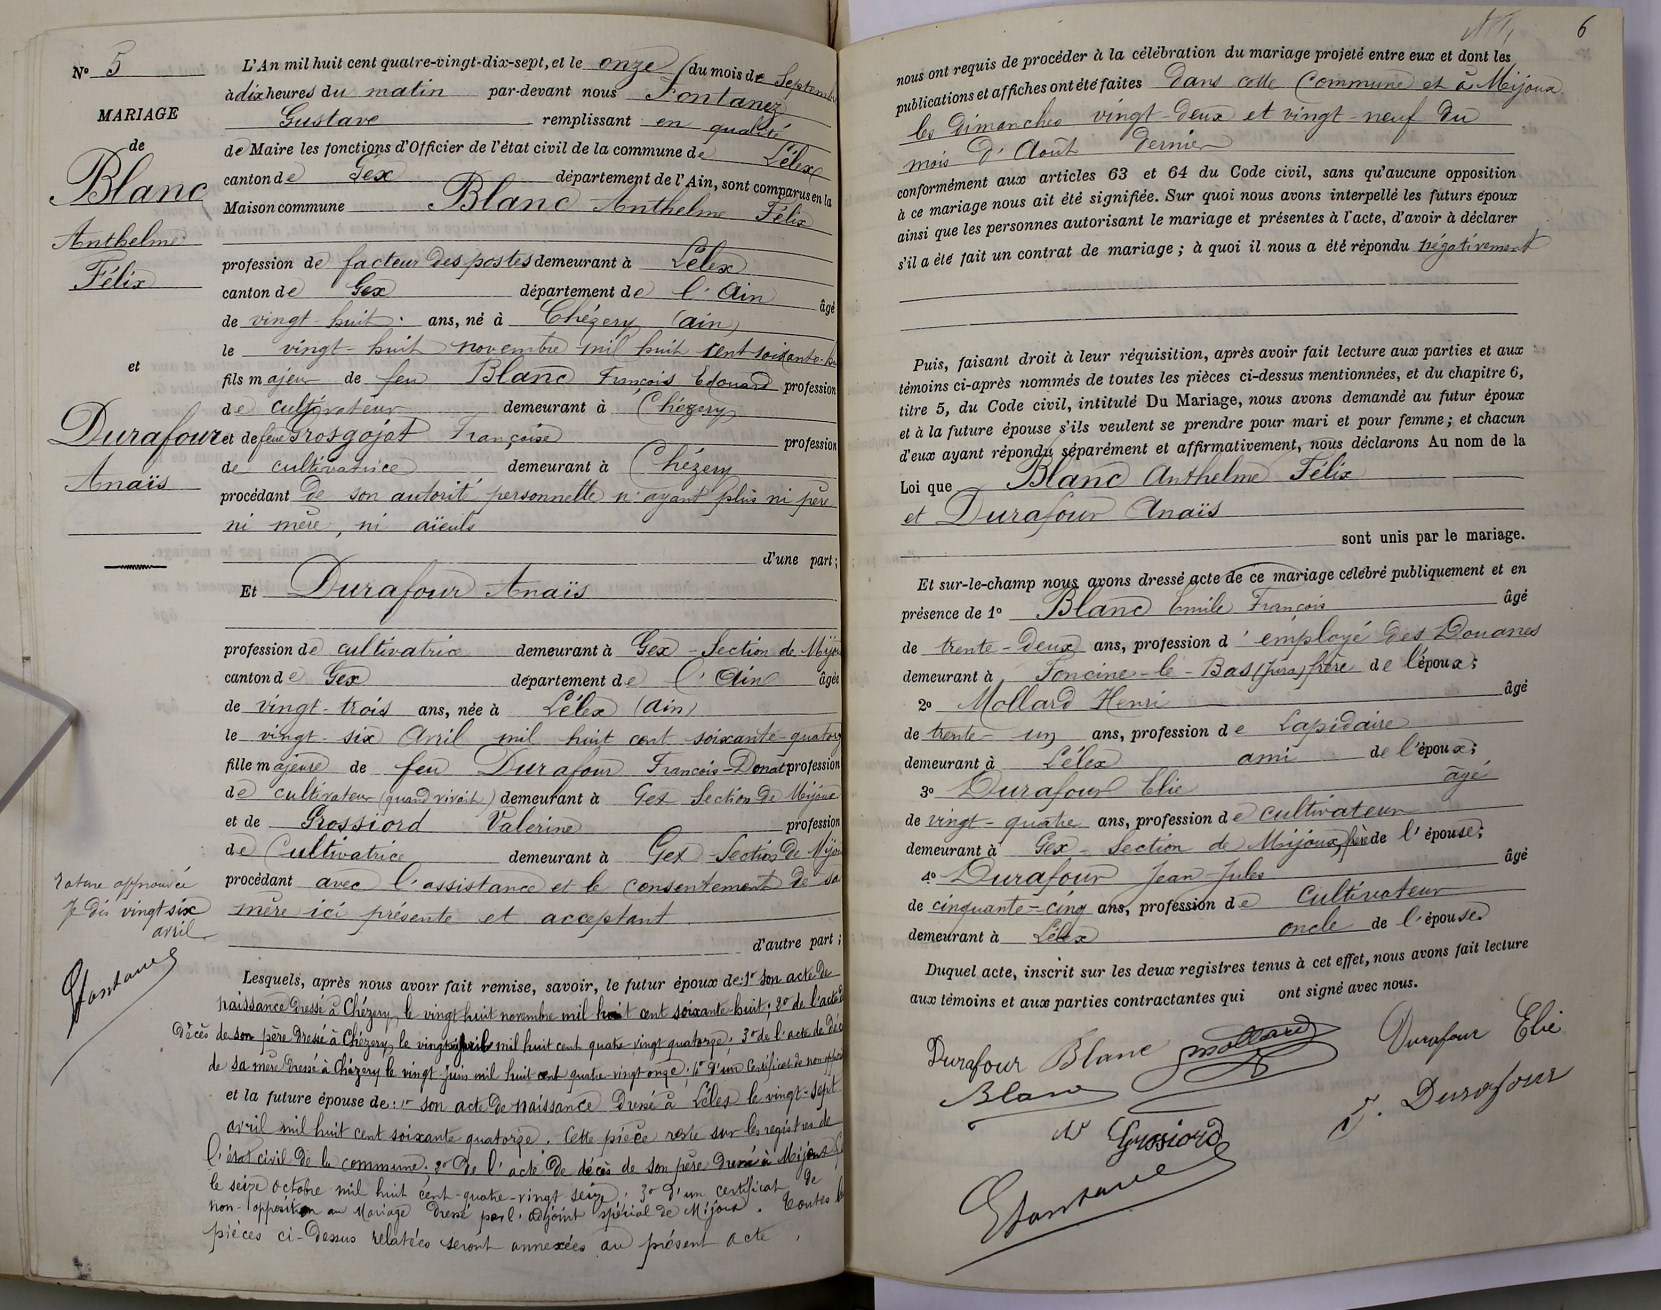 N° 5
MARIAGE
de
Blanc
Anthelme
Félix
et
Durafour
Anaïs
Rature approuvée
Je dis vingt six
avril
GFontanez
L'An mil huit cent quatre-vingt-dix-sept, et le onze du mois de Septembre
à dix heures du matin par-devant nous Fontanez
Gustave remplissant en qualité
de Maire les fonctions d'Officier de l'état civil de la commune de Lélex
canton de Gex département de l'Ain, sont comparus en la
Maison commune Blanc Anthelme Félix
profession de facteur des postes demeurant à Lélex
canton de Gex département de l'Ain âgé
de vingt-huit ans, né à Chézery (ain)
le vingt-huit novembre mil huit cent soixante-huit
fils majeur de feu Blanc François Edouard profession
de cultivateur demeurant à Chézery
et de feue Grosgojat Françoise profession
de cultivatrice demeurant à Chézery
procédant de son autorité personnelle n'ayant plus ni père
ni mère, ni aïeuls
d'une part;
Et Durafour Anaïs
profession de cultivatrice demeurant à Gex - Section de Mijoux
canton de Gex département de l'Ain âgée
de vingt-trois ans, née à Lélex (Ain)
le vingt-six Avril mil huit cent soixante-quatorze
fille majeure de feu Durafour François-Donat profession
de cultivateur (quand vivait) demeurant à Gex Section de Mijoux
et de Grossiord Valerine profession
de Cultivatrice demeurant à Gex - Section de Mijoux
procédant avec l'assistance et le consentement de sa
mère ici présente et acceptant
d'autre part;
Lesquels, après nous avoir fait remise, savoir, le futur époux de: 1° son acte de
naissance dressé à Chézery, le vingt huit novembre mil huit cent soixante huit; 2° de l'acte de
décès de son père dressé à Chézery, le vingt avril mil huit cent quatre-vingt quatorze; 3° de l'acte de décès
de sa mère dressé à Chézery le vingt Juin mil huit cent quatre-vingt onze; 4° d'un Certificat de non opposition
et la future épouse de: 1° son acte de naissance dressé à Lélex le vingt-sept
avril mil huit cent soixante quatorze. Cette pièce reste sur les registres de
l'état civil de la commune; 2° de l'acte de décès de son père dressé à Mijoux
le seize octobre mil huit cent-quatre-vingt seize; 3° d'un certificat de
non-opposition au Mariage dressé par l'adjoint spécial de Mijoux. Toutes les
pièces ci-dessus relatées seront annexées au présent acte.
6
nous ont requis de procéder à la célébration du mariage projeté entre eux et dont les
publications et affiches ont été faites dans cette Commune et à Mijoux
les dimanches vingt-deux et vingt-neuf du
mois d'Août dernier
conformément aux articles 63 et 64 du Code civil, sans qu'aucune opposition
à ce mariage nous ait été signifiée. Sur quoi nous avons interpellé les futurs époux
ainsi que les personnes autorisant le mariage et présentes à l'acte, d'avoir à déclarer
s'il a été fait un contrat de mariage; à quoi il nous a été répondu négativement
Puis, faisant droit à leur réquisition, après avoir fait lecture aux parties et aux
témoins ci-après nommés de toutes les pièces ci-dessus mentionnées, et du chapitre 6,
titre 5, du Code civil, intitulé Du Mariage, nous avons demandé au futur époux
et à la future épouse s'ils veulent se prendre pour mari et pour femme; et chacun
d'eux ayant répondu séparément et affirmativement, nous déclarons Au nom de la
Loi que Blanc Anthelme Félix
et Durafour Anaïs
sont unis par le mariage.
Et sur-le-champ nous avons dressé acte de ce mariage célébré publiquement et en
présence de 1° Blanc Emile François âgé
de trente-deux ans, profession d'employé des Douanes
demeurant à Foncine-le-Bas (Jura) frère de l'époux;
2° Mollard Henri âgé
de trente-un ans, profession de Lapidaire
demeurant à Lélex ami de l'époux;
3° Durafour Elie âgé
de vingt-quatre ans, profession de cultivateur
demeurant à Gex - Section de Mijoux, frère de l'épouse;
4° Durafour Jean-Jules âgé
de cinquante-cinq ans, profession de cultivateur
demeurant à Lélex oncle de l'épouse
Duquel acte, inscrit sur les deux registres tenus à cet effet, nous avons fait lecture
aux témoins et aux parties contractantes qui ont signé avec nous.
Durafour Blanc Mollard Durafour Elie
Blanc
J. Durafour
Grossiord
GFontanez